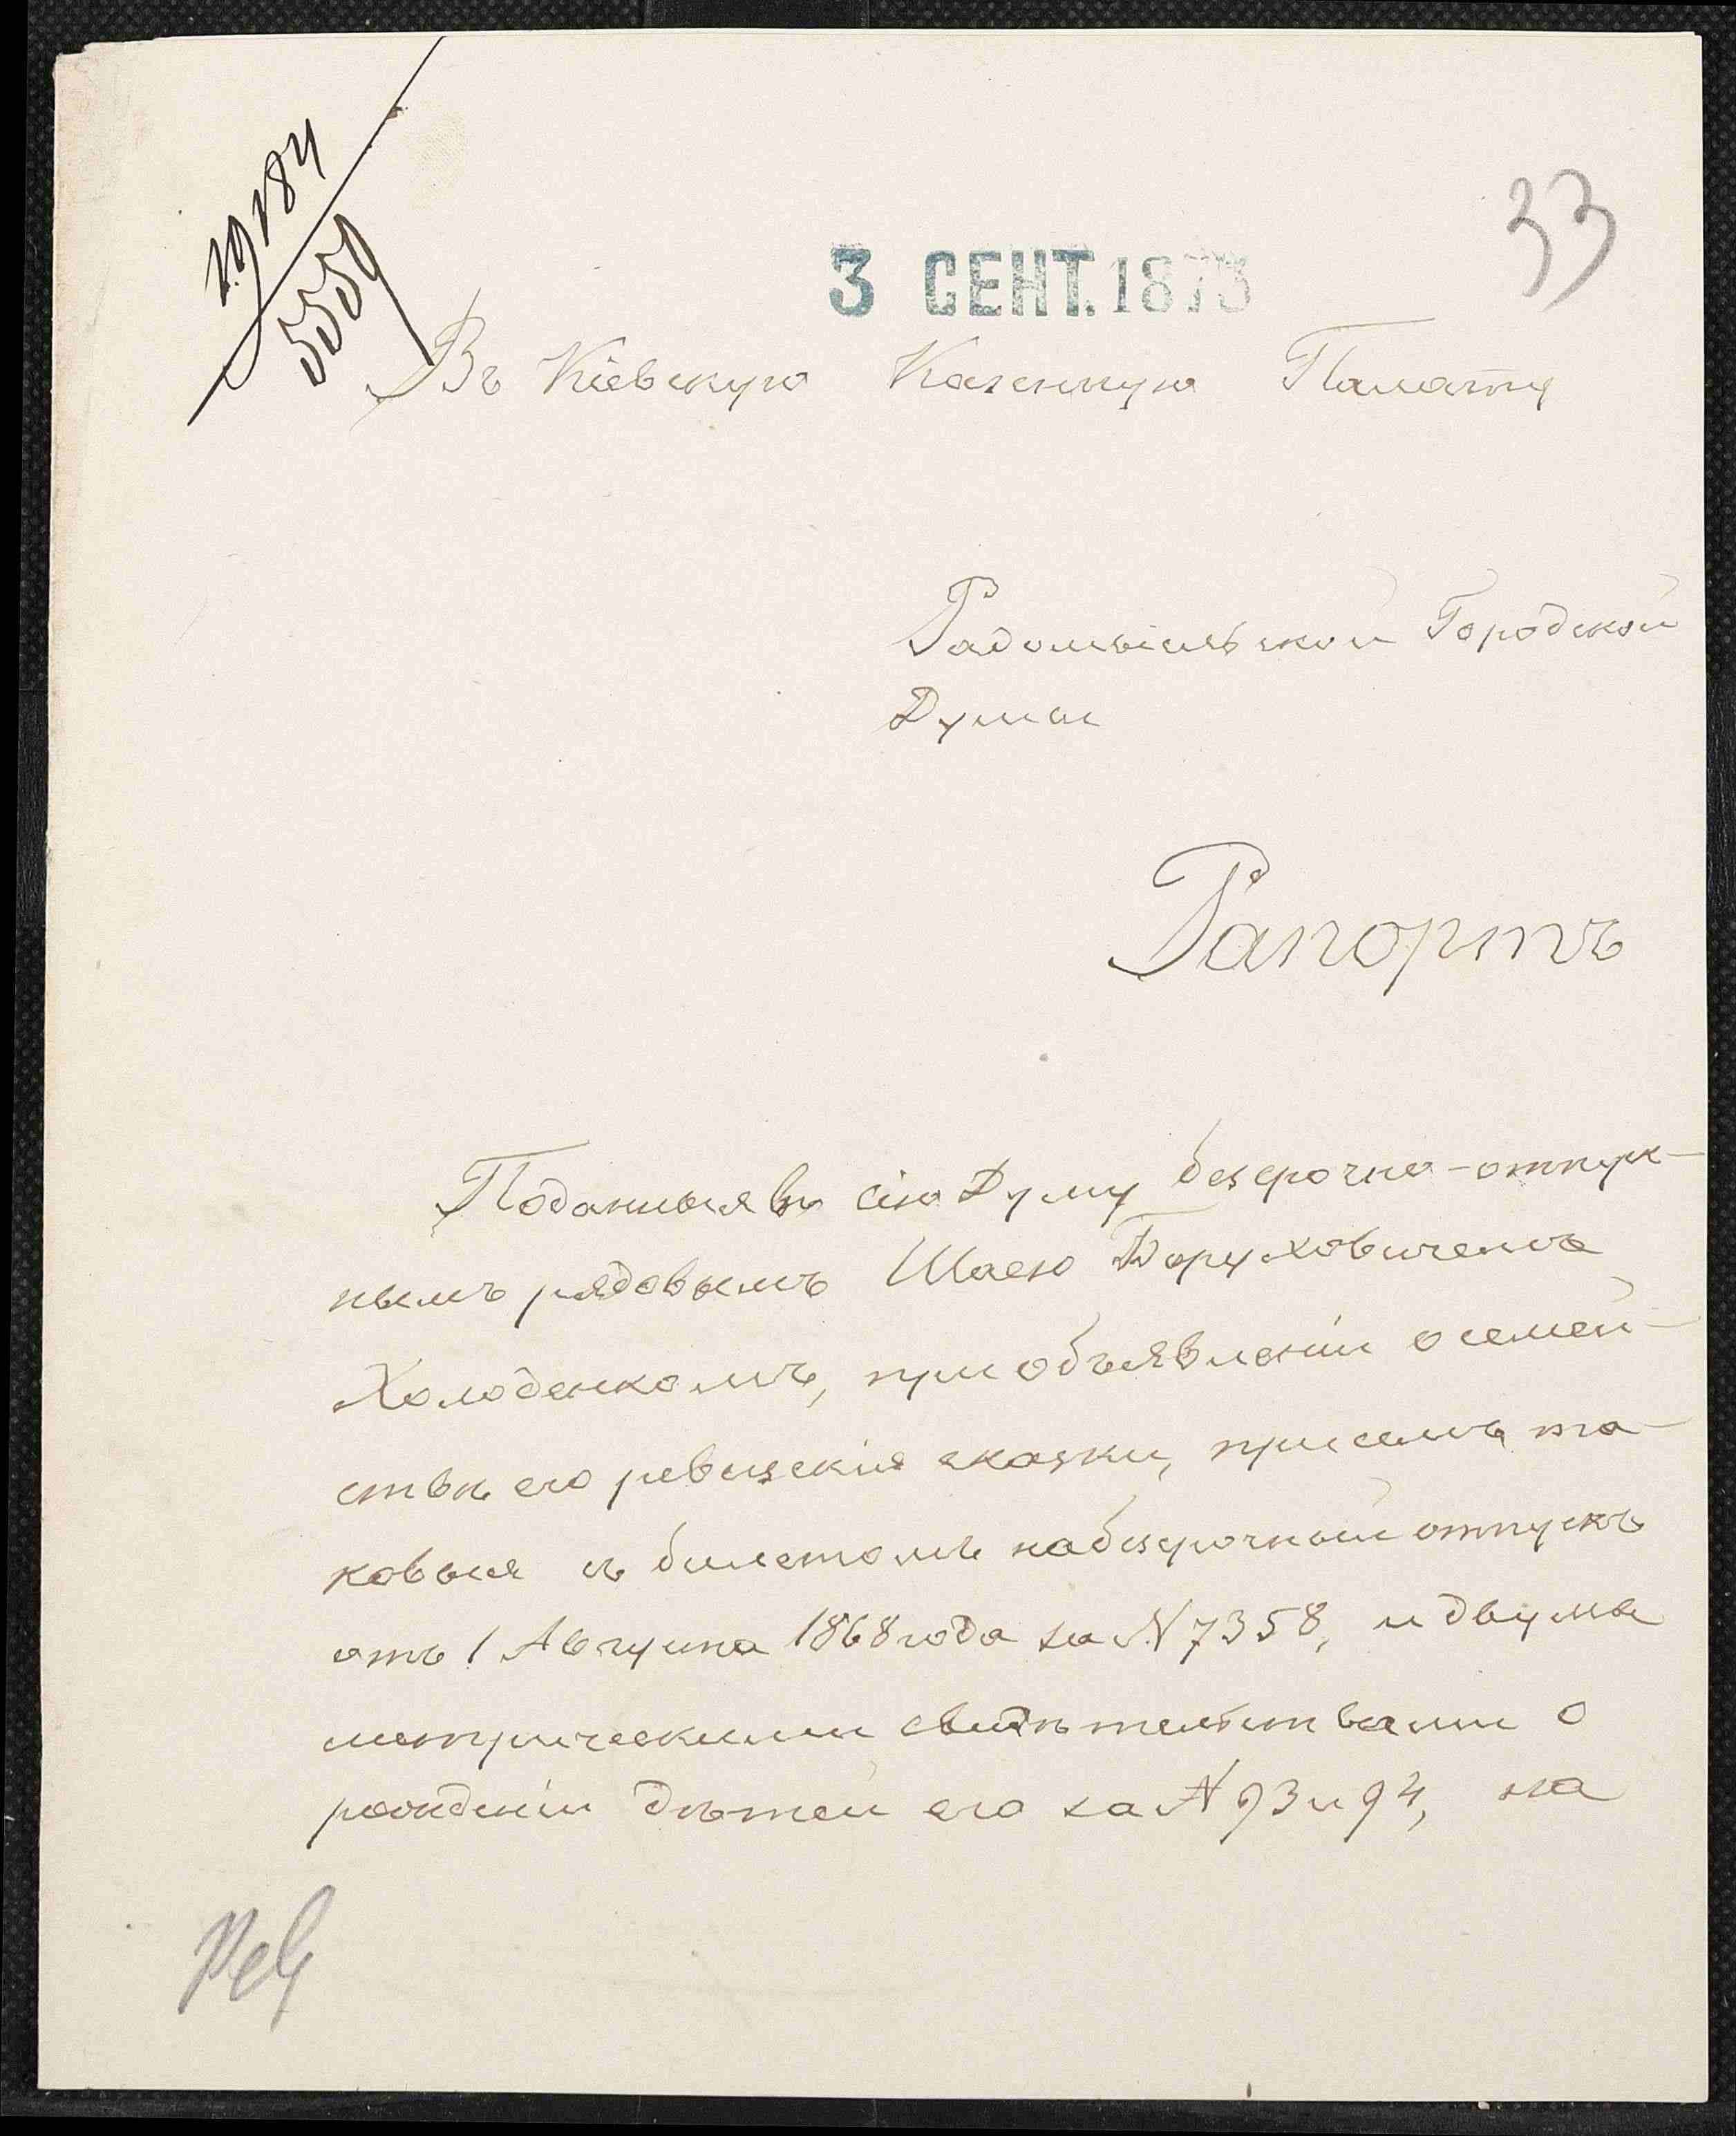 19184
5559
33
3 СЕНТ. 1873
Въ Кіевскую Казенную Палату
Радомысльской Городской
Думы
Рапортъ
Поданныя въ сію Думу безсрочно-отпуск-
нымъ рядовымъ Шаею Боруховичемъ
Холоденкомъ, при объявленіи о семей-
ствѣ его ревизскія сказки, при семъ та-
ковыя съ билетомъ на безсрочный отпускъ
отъ 1 Августа 1868 года за № 7358, и двумя
метрическими свидѣтельствами о
рожденіи дѣтей его за № 93 и 94, на